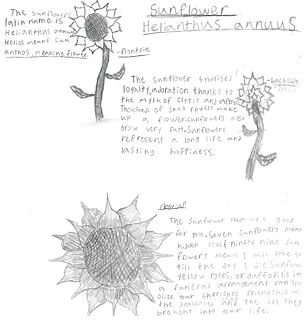 Sunflower
Helianthus annuus
The sunflowers
latin name is
Helianthas annuus
Helios means sun
anthos, meaning flower
frontside
backside
The sunflower symbolises
loyalty, adoration, thanks to
the myth of Clytie and
Thousands of small flowers make
up a flower. sunflowers also
grow very fast. Sunflowers
represent a long life and
lasting happiness.
close up
The Sunflower are good
for you. Seven sunflowers mean
hidden love. Ninfty nine sun
flowers mean I will love
till the day I die. Sunflower
yellow roses, or daffodils in
a funeral arrangement can
your cherished friendship
the deceased and the joy they
brought into your life.